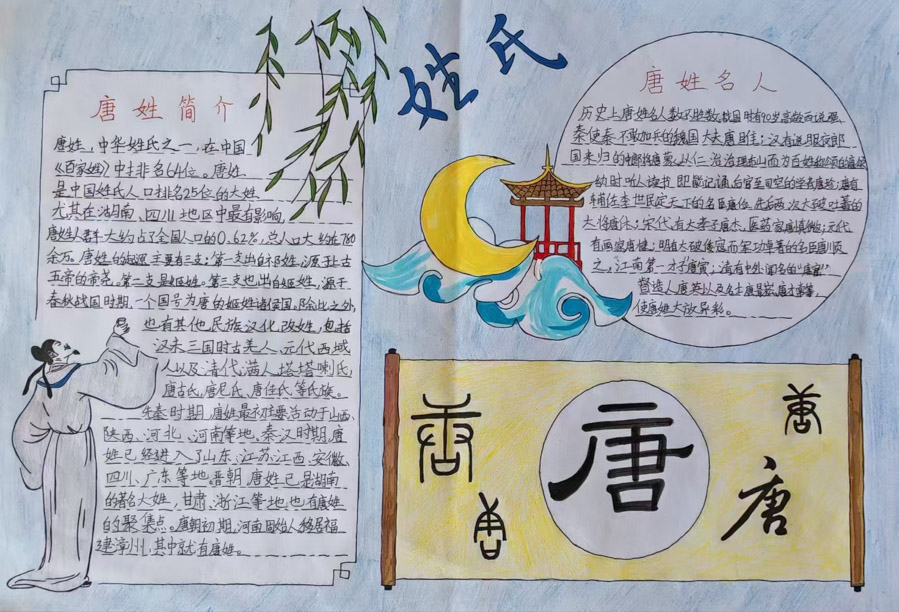 姓氏
唐姓简介
唐姓,中华姓氏之一,在中国
《百家姓》中排名64位。唐姓
是中国姓氏人口排名25位的大姓
尤其在湖南、四川地区中最有影响,
唐姓人群大约占了全国人口的0.62%,总人口大约在780
余万。唐姓的起源主要有三支:第一支出自祁姓,源于上古
五帝的帝尧,第二支是姬姓。第三支也出自姬姓,源于
春秋战国时期,一个国号为唐的姬姓诸侯国,除此之外,
也有其他民族汉化改姓,包括
汉末三国时古羌人、元代西域
人以及清代满人塔塔喇氏,
唐古氏,唐尼氏、唐佳氏等氏族。
先秦时期,唐姓最初主要活动于山西、
陕西、河北、河南等地,秦汉时期,唐
姓已经进入了山东、江苏、江西、安徽、
四川、广东等地。晋朝,唐姓已是湖南
的著名大姓,甘肃、浙江等地,也有唐姓
的聚集点。唐朝初期,河南固始人移居福
建漳州,其中就有唐姓。
唐姓名人
历史上唐姓名人数不胜数,战国时有90岁高龄而说服
秦使秦不敢加兵的魏国大夫唐雎;汉有
从仁治
幼时听人读书即能记诵,
辅佐李世民定天下的名臣唐俭,先后两次大破吐蕃的
大将唐休;宋代有大孝子唐杰,医药家唐慎微;元代
有画家唐棣;明有大破倭寇而军功卓著的名臣唐顺
之,江南第一才子唐寅;清有中外闻名的“唐窑”
督造人唐英以及名士唐甄、唐才常等,
使唐姓大放异彩。
唐
唐
唐
唐
唐